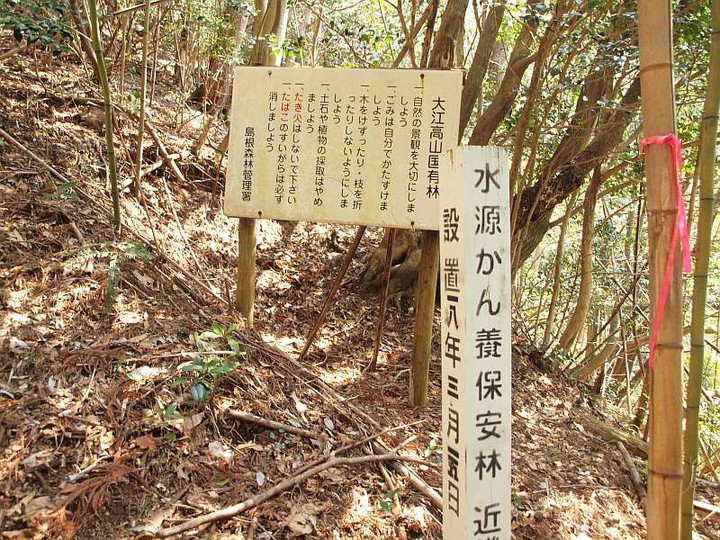 大江高山国有林
一、自然の景観を大切にしま
しょう
一、ごみは自分でかたずけま
しよう
一、木をけずったり・枝を折
ったりしないようにしま
しよう
一、土石や植物の採取はやめ
ましょう
一、たき火はしないで下さい
一、たばこのすいがらは必ず
消しましょう
島根森林管理署
水源かん養保安林 近
設置 八年三月 日